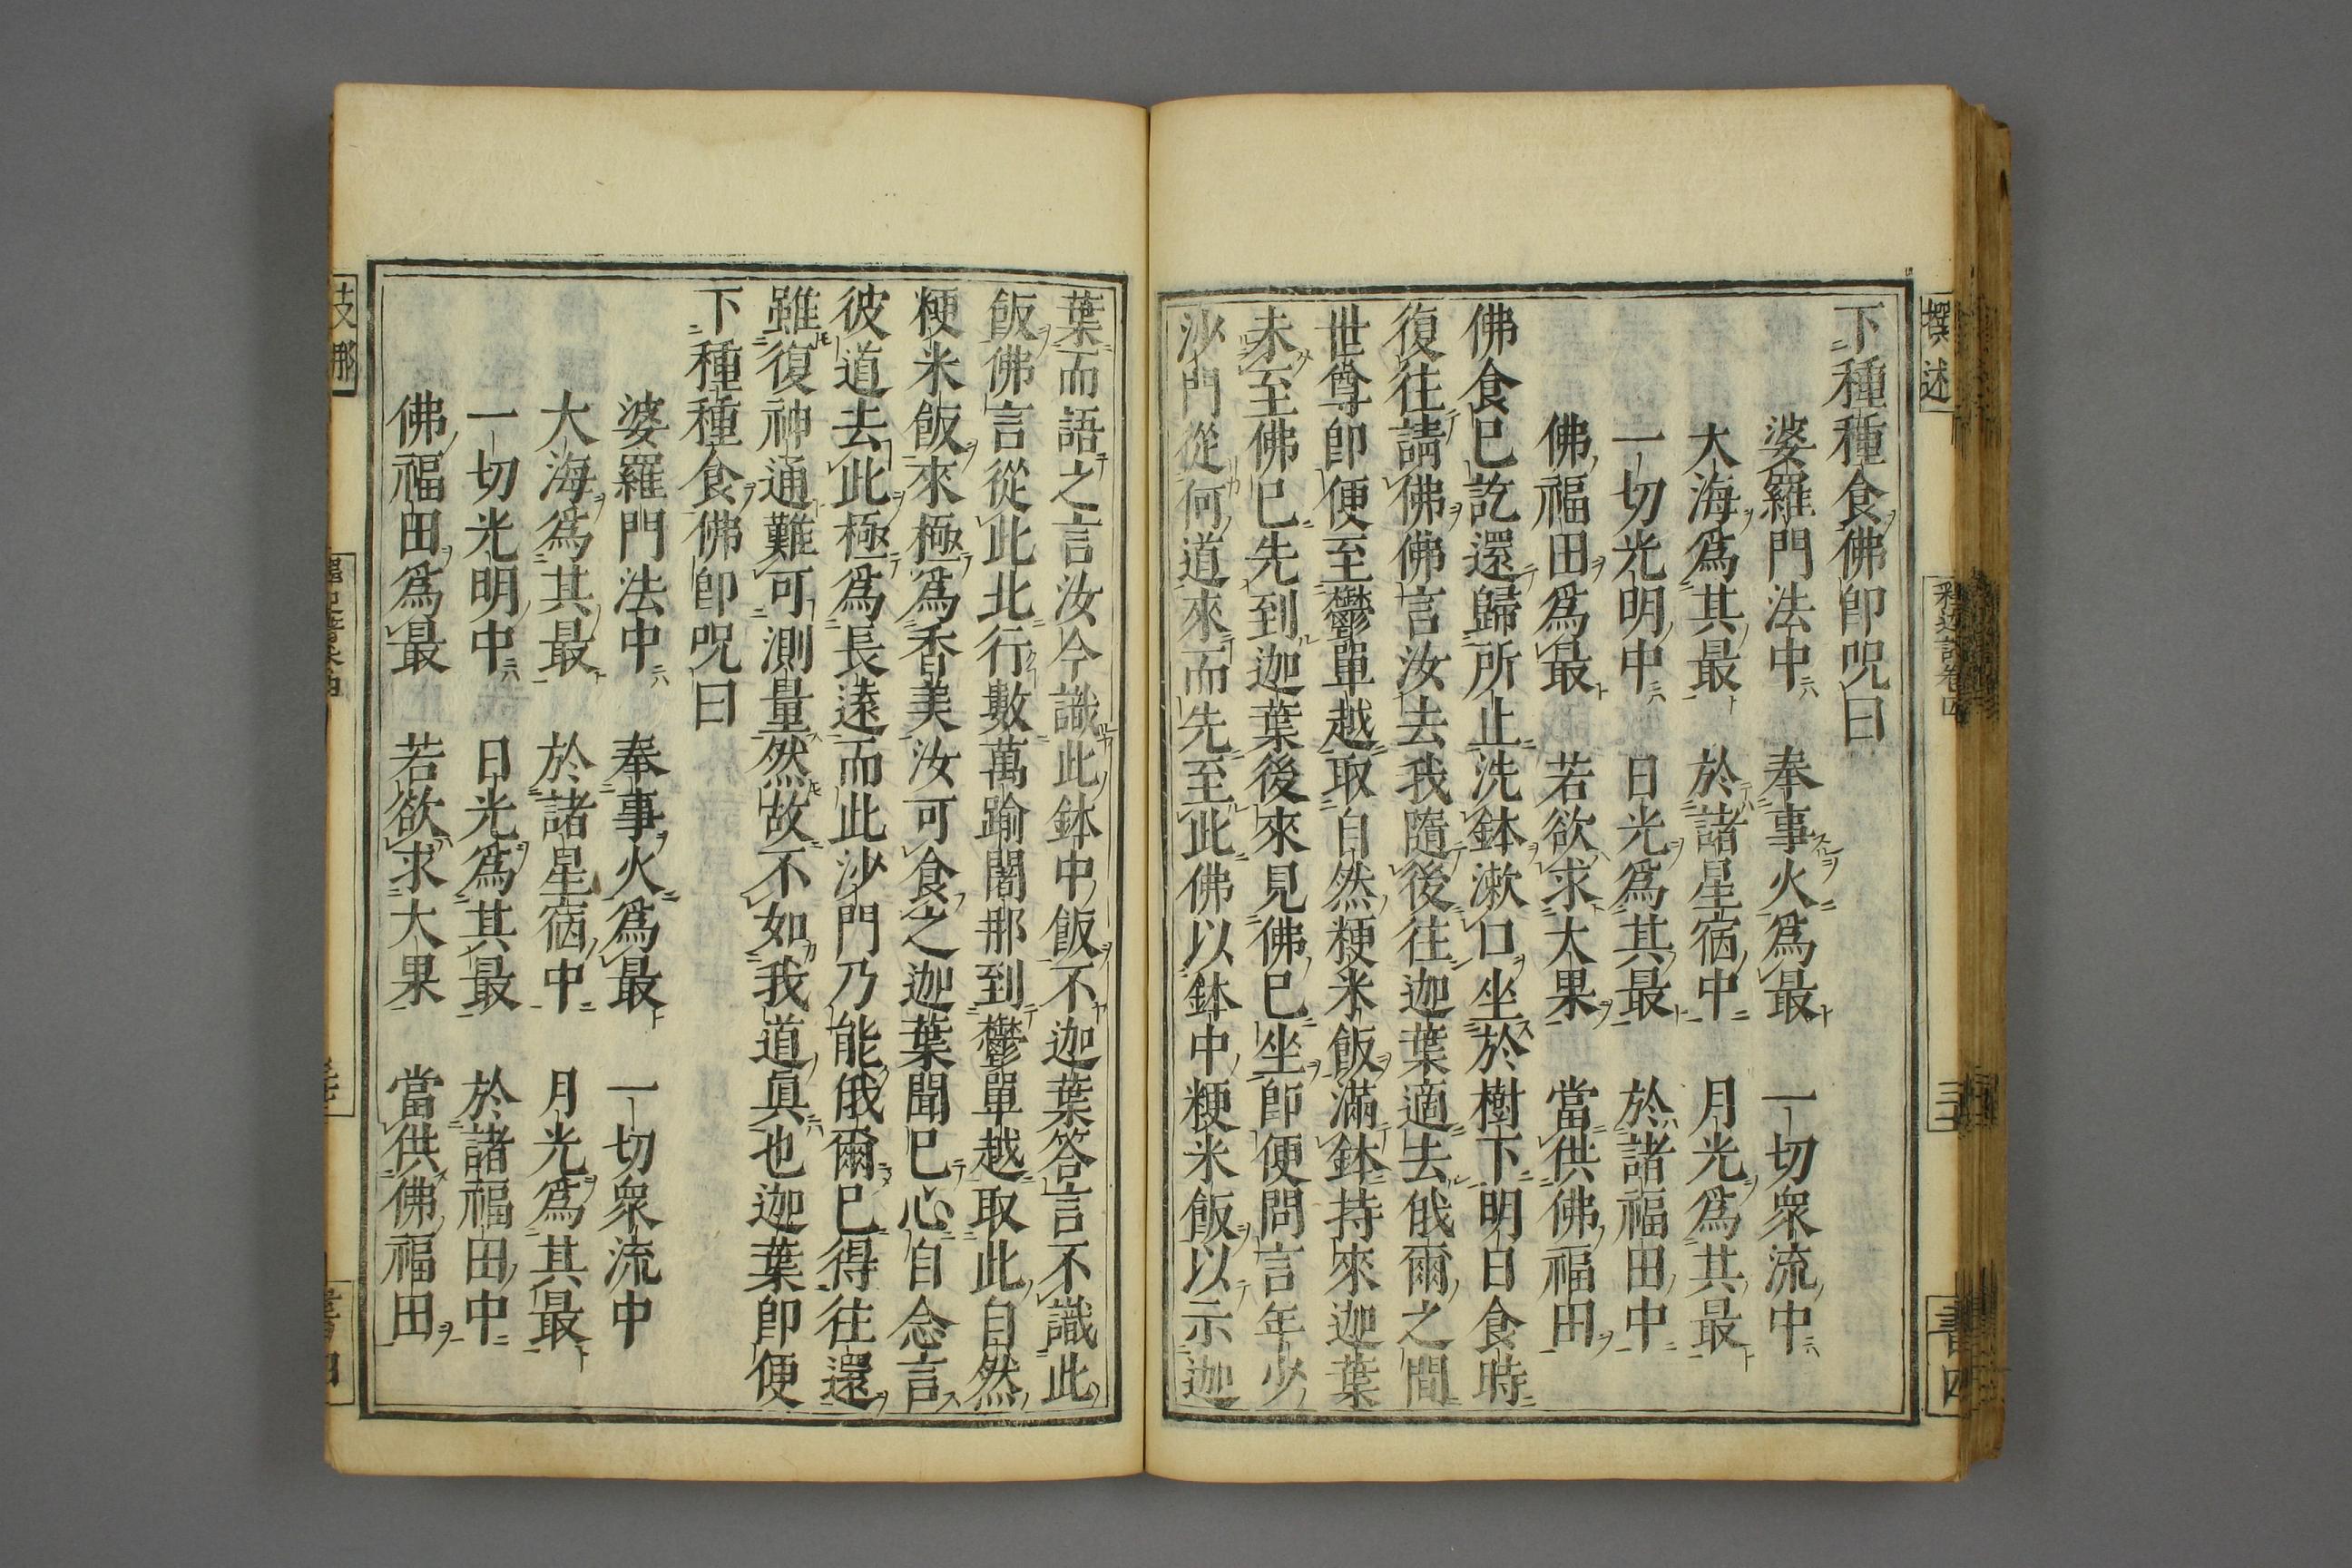 撰述
釋迦譜卷四
三
書四
下種種食佛卽呪曰
婆羅門法中　奉事火爲最　一切衆流中
大海爲其最　於諸星宿中　月光爲其最
一切光明中　日光爲其最　於諸福田中
佛福田爲最　若欲求大果　當供佛福田
佛食已訖還歸所止洗鉢漱口坐於樹下明日食時
復往請佛佛言汝去我隨後往迦葉適去俄爾之間
世尊卽便至鬱單越取自然粳米飯滿鉢持來迦葉
未至佛已先到迦葉後來見佛已坐卽便問言年少
沙門從何道來而先至此佛以鉢中粳米飯以示迦
葉而語之言汝今識此鉢中飯不迦葉答言不識此
飯佛言從此北行數萬踰闍那到鬱單越取此自然
粳米飯來極爲香美汝可食之迦葉聞已心自念言
彼道去此極爲長遠而此沙門乃能俄爾已得往還
雖復神通難可測量然故不如我道眞也迦葉卽便
下種種食佛卽呪曰
婆羅門法中　奉事火爲最　一切衆流中
大海爲其最　於諸星宿中　月光爲其最
一切光明中　日光爲其最　於諸福田中
佛福田爲最　若欲求大果　當供佛福田
支那